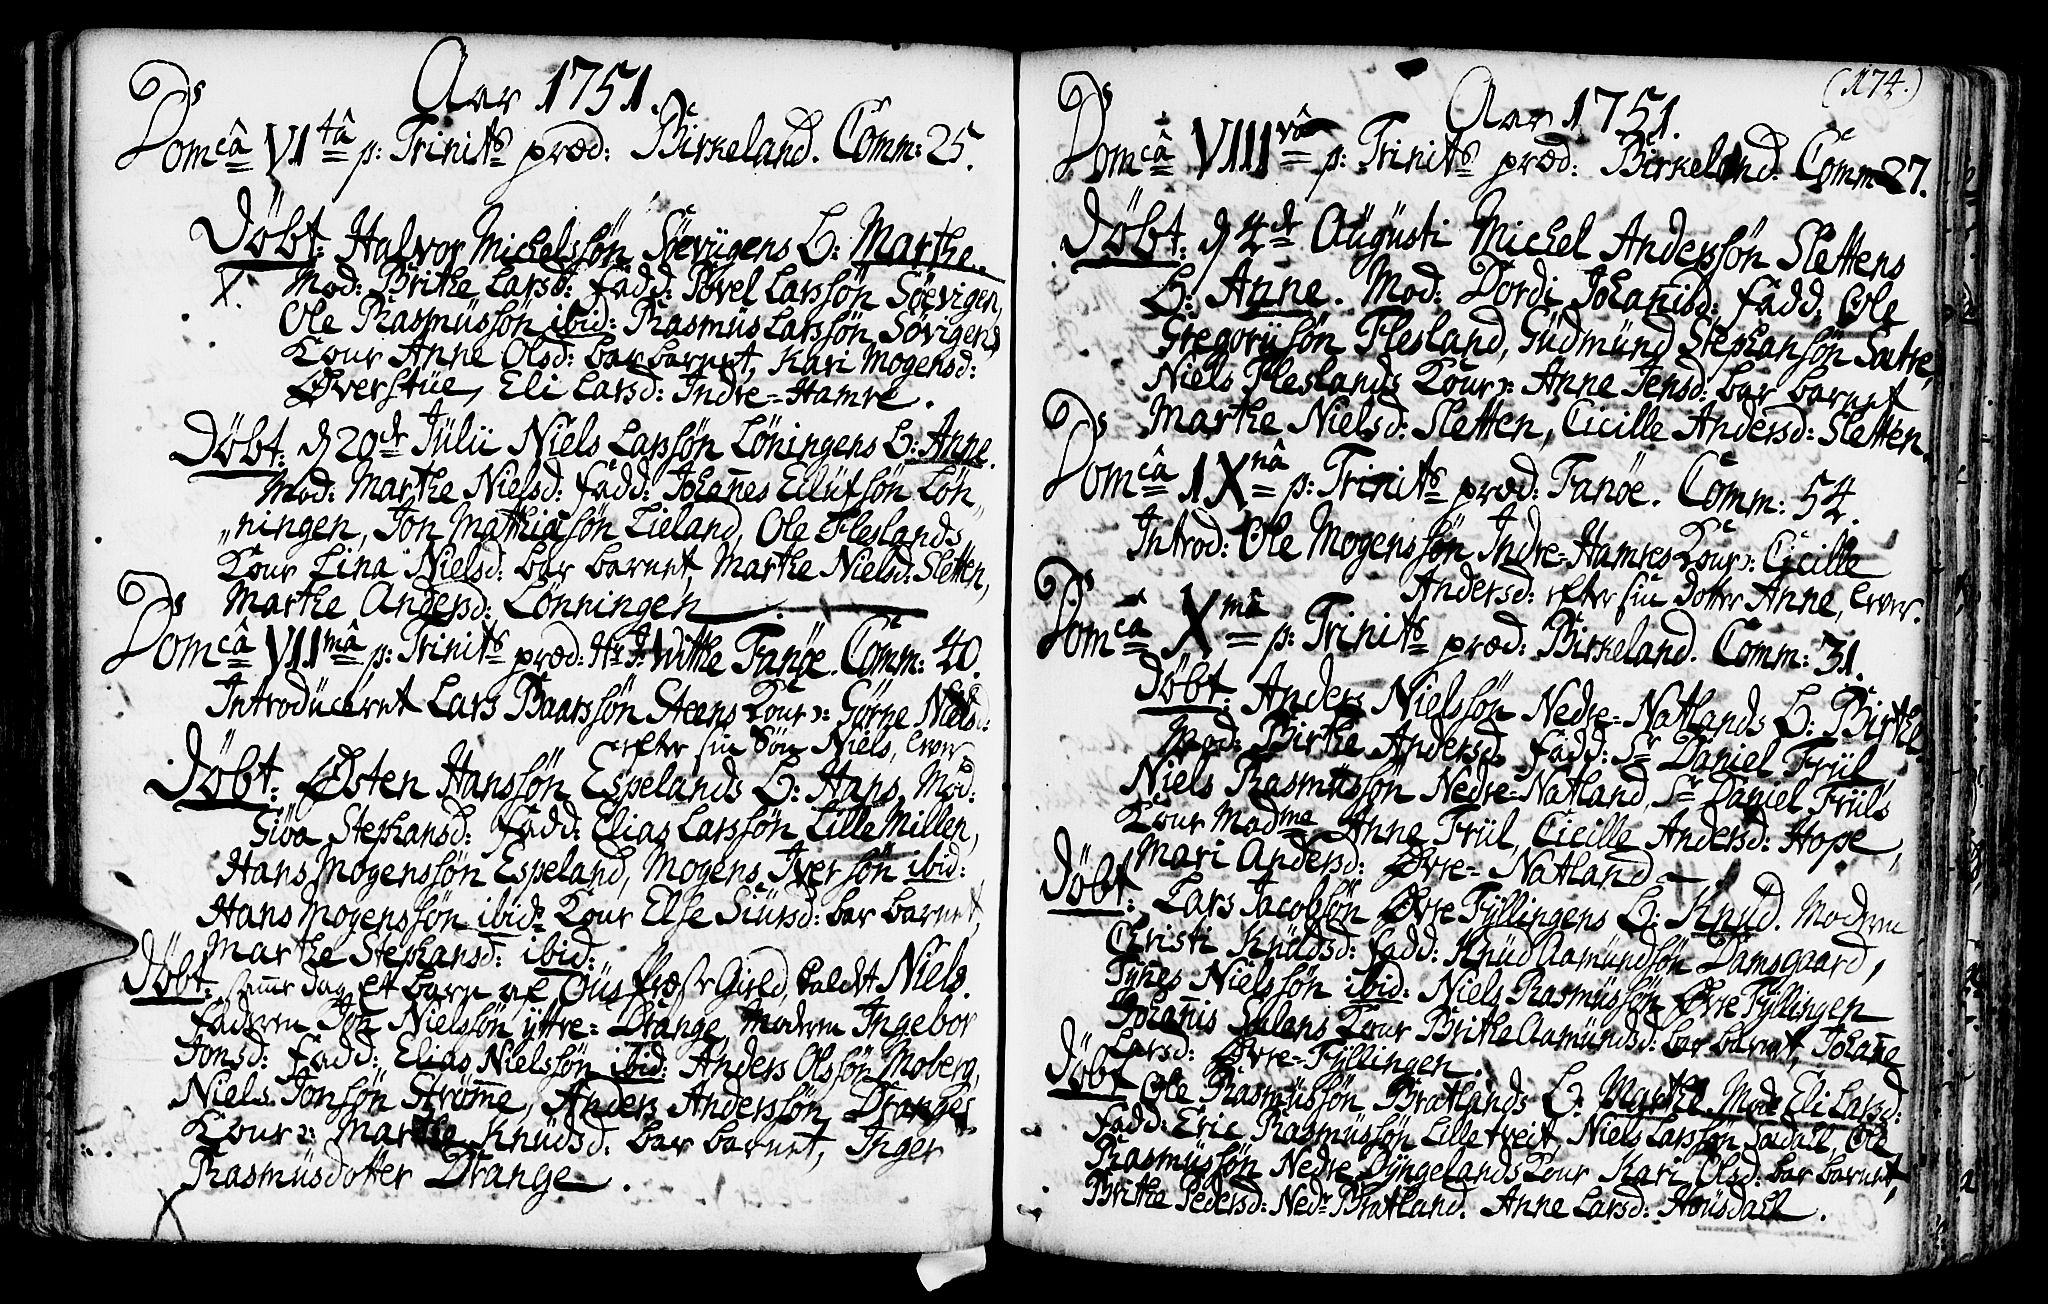 Ds
Aar 1751.
Domcâ VItâ p: Trinits præd: Birkeland. Comm: 25.
Döbt: Halvor Michelssön Söevigens B: Marthe.
X. Mod: Brithe Larsd: fadd: Povel Larssön Söevigen,
Ole Rasmussön ibid: Rasmus Larssön Sövigens
Kone Anne Olsd: bar barnet, Kari Mogensd:
Øverstüe, Eli Larsd: Indre-Hamre.
Döbt: d 20de Julii Niels Larssön Löningens B: Anne.
Mod: Marthe Nielsd: fadd: Johan̅es Eilufsön Lön„
„ningen, Jon Mathiasön Lieland, Ole Fleslands
Kone Lina Nielsd: bar barnet, Marthe Nielsd: Sletten,
Marthe Andersd: Lönningen.
Ds
Domcâ VIImâ p: Trinits præd: Hr J: Withe Fanöe. Comm: 40.
Introduceret Lars Baarssön Steens Kone: Görne Nielsd:
efter sin Sön Niels,
Döbt: Østen Hanssön Espelands B: Hans, Mod:
Giöa Stephansd: fadd: Elias Larssön Lille Millen,
Hans Mogenssön Espeland, Mogens Iversön ibid:
Hans Mogenssön ibid: Kone Else Siursd: bar barnet,
Marthe Stephansd: ibid:
Döbt: samme dag et barn af Ous Gield, kaldet Niels.
Faderen Jon Nielssön yttre-Drange, Moderen Ingebor
Jonsd: fadd: Elias Nielssön ibid: Anders Olssön Moberg,
Niels Jonsön Ström̅e, Anders Anderssön Dranges
Kone: Marthe Knudsd: bar barnet, Inger
Rasmusdotter Drange.
X
(174.)
Ds
Aar 1751.
Domcâ VIIIvâ p: Trinits præd: Birkeland. Comm 27.
Döbt: d 4de Augusti Michel Anderssön Slettens
B: Anne. Mod: Dordi Johan̅isd: fadd: Ole
Gregoriisön Flesland, Gudmund Stephansön Sætre,
Niels Fleslands Kone: Anne Jensd: bar barnet
Marthe Nielsd: Sletten, Cicille Andersd: Sletten.
Ds
Domcâ IXnâ p: Trinits præd: Fanöe. Comm: 54.
Introd: Ole Mogenssön Indre-Hamres Kone: Cicille
Andersd: efter sin dotter Anne,
Ds
Domcâ Xmâ p: Trinits præd: Birkeland. Comm: 31.
Döbt: Anders Nielssön Nedre-Natlands B: Birthe.
Mod: Birthe Andersd. fadd: Sr Daniel Frül,
Niels Rasmussön Nedre-Natland, Sr Daniel Früls
Kone Madme Anne Frül, Cicille Andersd: Hope,
Mari Andersd: Øvre-Natland
Döbt: Lars Jacobsön Øvre Fyllingens B: Knud. Moderen
Christi Knudsd: fadd: Knud Aamundsön Damsgaard,
Tyn̅es Nielssön ibid: Niels Rasmussön Øvre Fyllingen
Johan̅is Sælens Kone Brithe Aamundsd: bar barnet, Johan̅e
Larsd: Øvre-Fyllingen.
Döbt Ole Rasmussön Bratlands B: Marthe. Mod: Eli Larsd:
fadd: Eric Rasmussön Lilletveit, Niels Larssön Sædall, Ole
Rasmussön Nedre Dyngelands Kone Kari Olsd: bar barnet,
Brithe Pedersd: Nedr Bratland. Anne Larsd: Housdall.